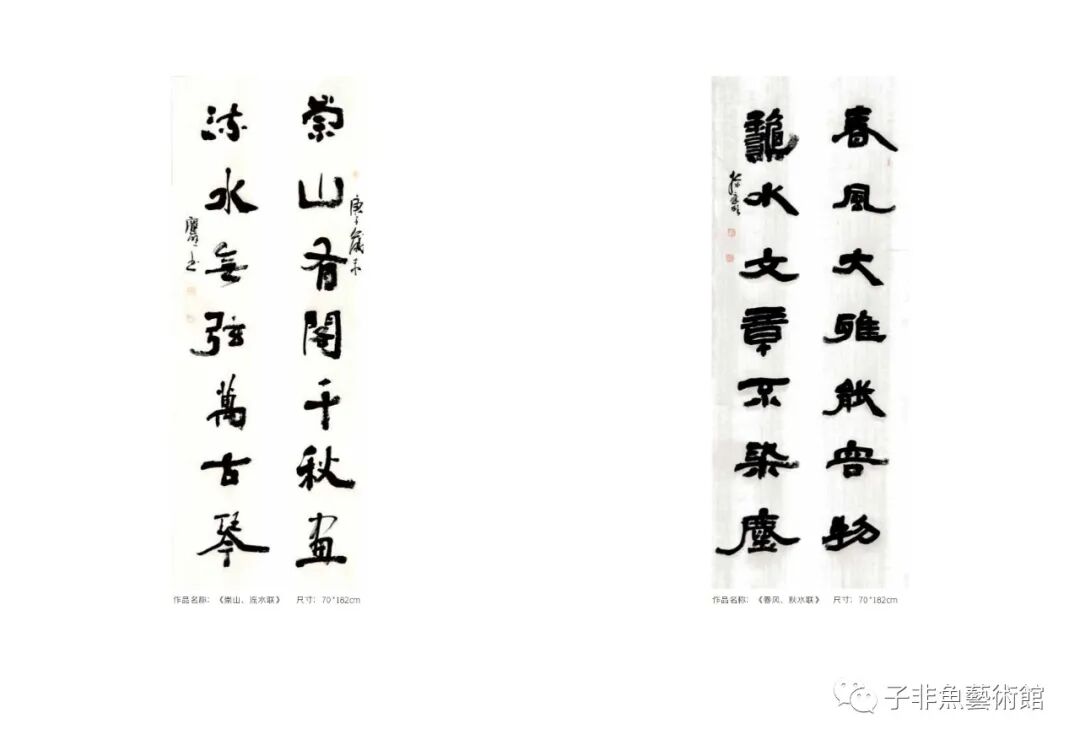 崇山有閣千秋畫
流水無弦萬古琴
庚子歲末
作品名称：《崇山、流水联》 尺寸：70*182cm
春風大雅能容物
龝水文章不染塵
作品名称：《春风、秋水联》 尺寸：70*182cm
子非魚藝術館